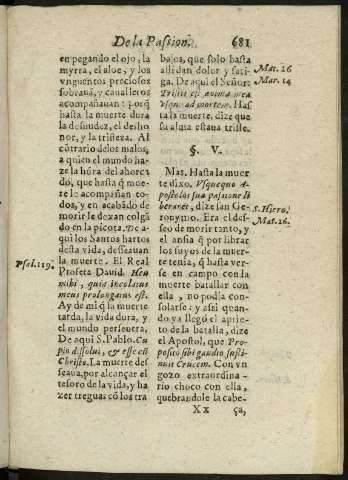 De la Passion. 681
en pegando el ojo, la
myrra, el aloe, y los
vnguentos preciosos
sobraua, y caualleros
acompañauan: porq̃
hasta la muerte dura
la desnudez, el desho
nor, y la tristeza. Al
cõtrario de los malos,
a quien el mundo ha-
ze la hõra del ahorca
do, que hasta q̃ mue-
re le acompañan to-
dos, y en acabãdo de
morir le dexan colgã
do en la picota. De a-
qui los Santos hartos
desta vida, desseauan
la muerte. El Real
Profeta Dauid. Heu
mihi, quia incolatus
meus prolongatus est.
Ay de mi q̃ la muerte
tarda, la vida dura, y
el mundo perseuera.
De aqui S. Pablo. Cu
pio dissolui, & esse cũ
Christo. La muerte des
seaua, por alcançar el
tesoro de la vida, y ha
zer treguas cõ los tra
Psal. 119.
bajos, que solo hasta
alli dan dolor y fati-
ga. De aqui el Señor:
Tristis est anima mea
vsque ad mortem. Has
ta la muerte, dize que
su alma estaua triste.
Mat. 26
Mar. 14
§. V.
Mas. Hasta la muer
te dixo. Vsquequo A-
postolos sua passione li
beraret, dize san Ge-
ronymo. Era el des-
seo de morir tanto, y
el ansia q̃ por librar
los suyos de la muer-
te tenia, q̃ hasta ver-
se en campo con la
muerte batallar con
ella, no podia con-
solarse: y assi quan-
do ya llegò el aprie-
to de la batalla, dize
el Apostol, que Pro-
posito sibi gaudio susti
nuit Crucem. Con vn
gozo extraordina-
rio choco con ella,
quebrandole la cabe-
S. Hiero.
Mat. 26.
X x ça,